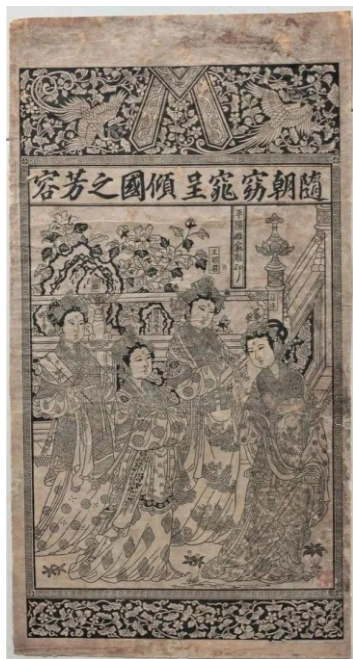 隨朝窈窕呈傾國之芳容
平陽姬家雕印